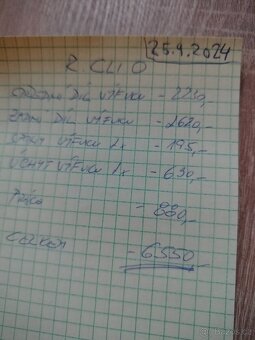 25.9.2024
R. CLIO
STŘEDNÍ DÍL VÝFUKU - 2230,-
ZADNÍ DÍL VÝFUKU - 2620,-
VÝFUKU 2x - 195,-
ÚCHYT VÝFUKU 1x - 630,-
PRÁCE - 880,-
CELKEM - 6550